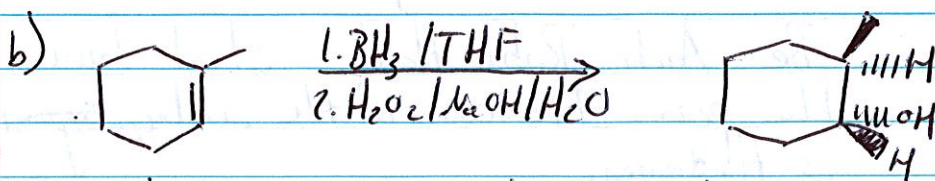 b)
1. BH₃ / THF
2. H₂O₂ / NaOH / H₂O
H
OH
H